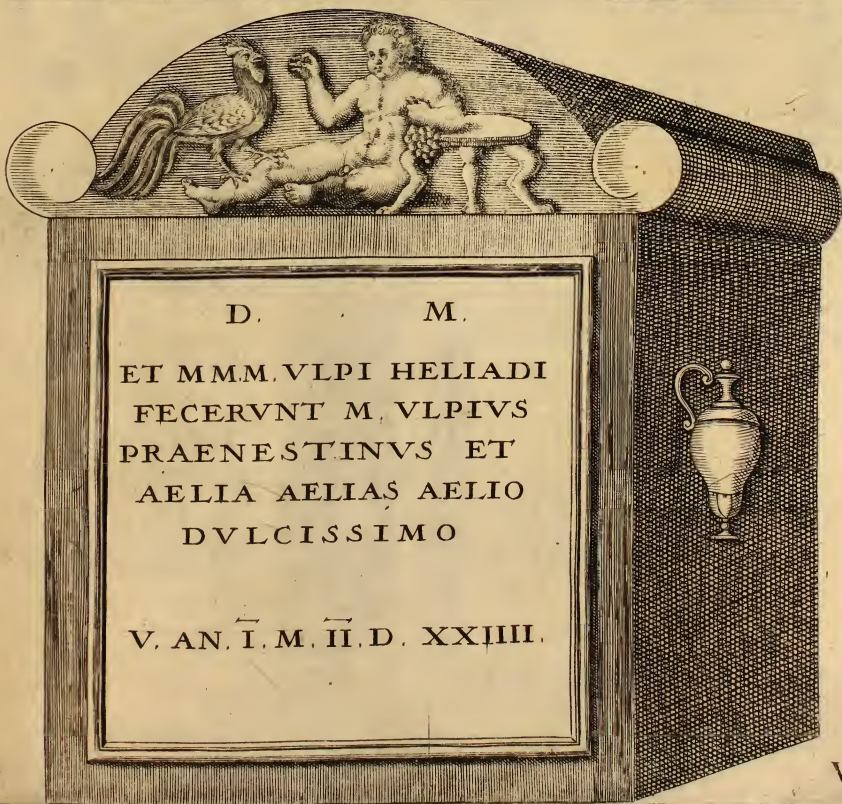 D. . M.
ET MM.M. VLPI HELIADI
FECERVNT M. VLPIVS
PRAENESTINVS ET
AELIA AELIAS AELIO
DVLCISSIMO
V. AN. I. M. II. D. XXIIII.